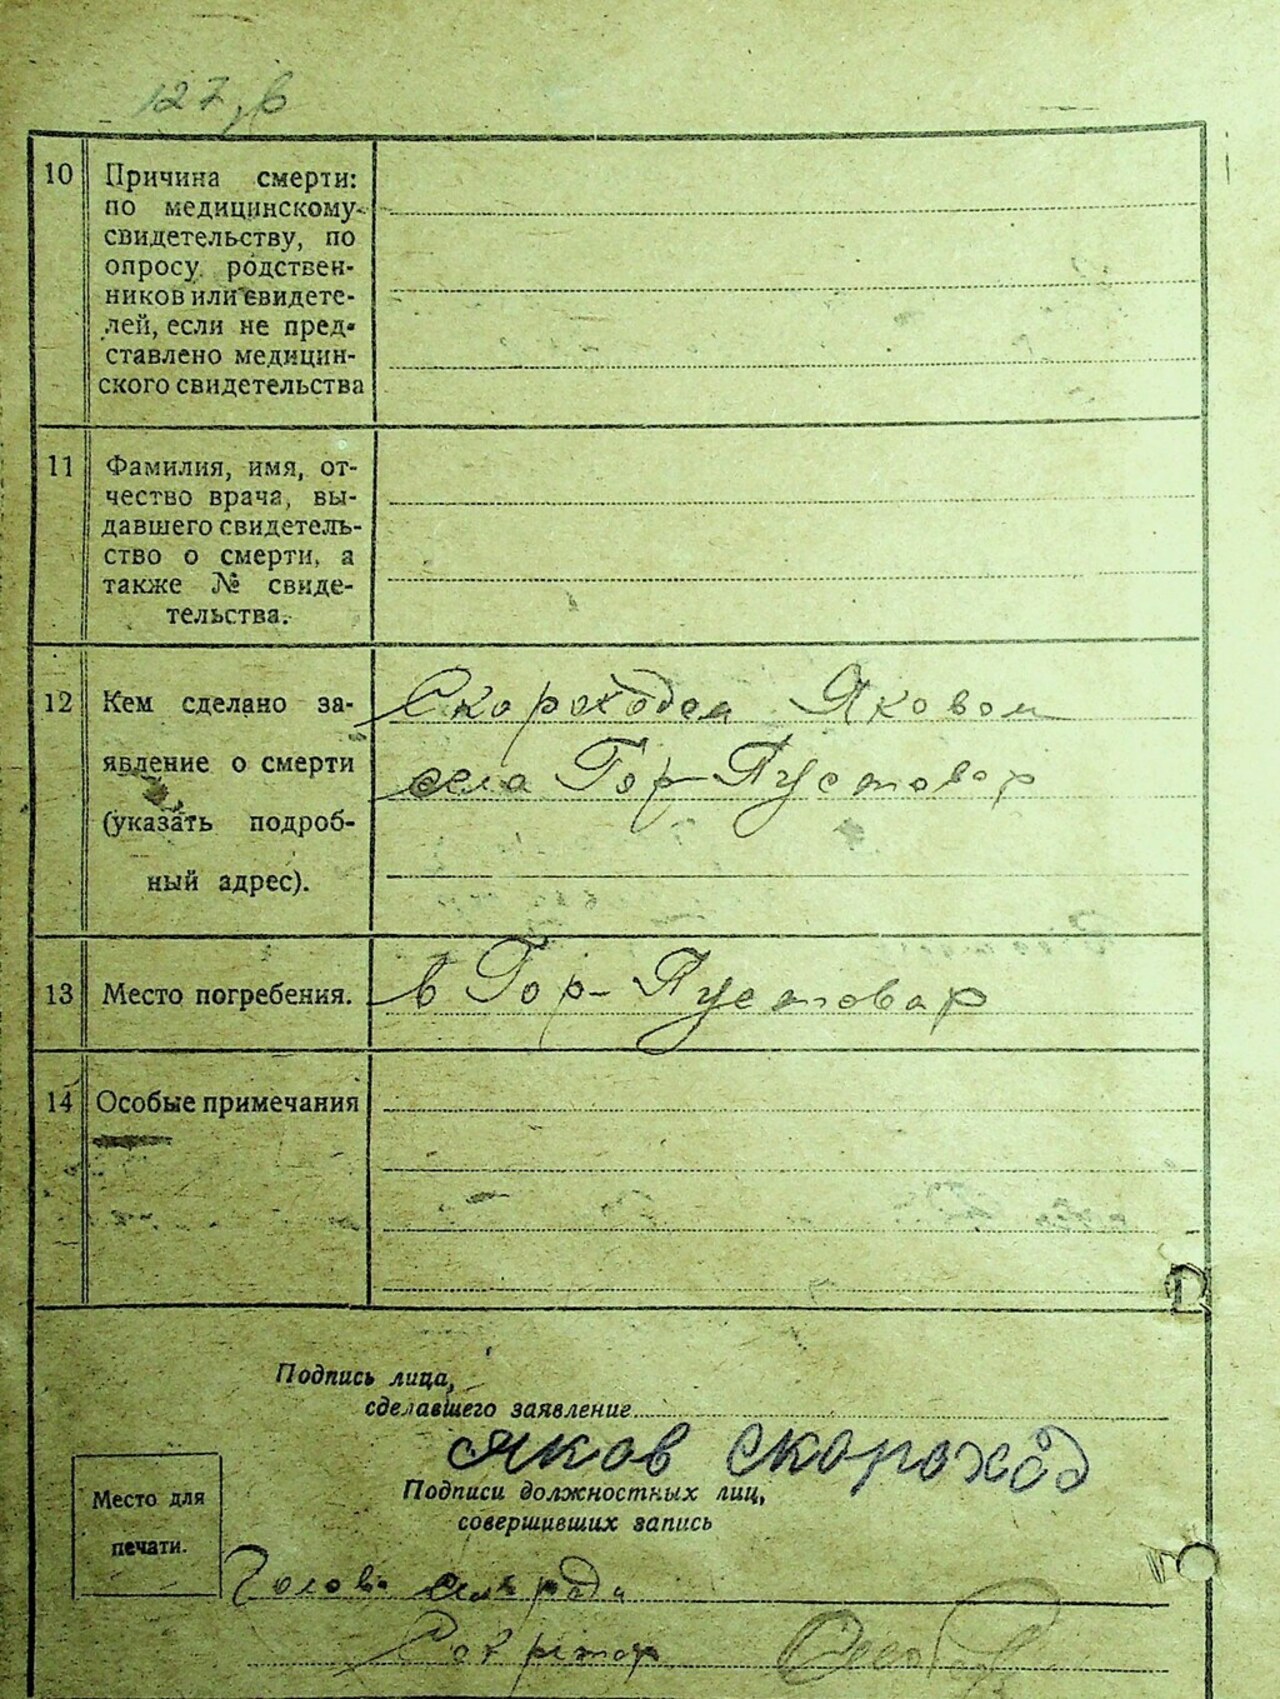 127, в
10 Причина смерти:
по медицинскому
свидетельству, по
опросу родствен-
ников или свидете-
лей, если не пред-
ставлено медицин-
ского свидетельства
11 Фамилия, имя, от-
чество врача, вы-
давшего свидетель-
ство о смерти, а
также № свиде-
тельства.
12 Кем сделано за-
явление о смерти
(указать подроб-
ный адрес).
Скороходом Яковом
села Гор-Пустовар
13 Место погребения.
в Гор-Пустовар
14 Особые примечания
Подпись лица,
сделавшего заявление
Яков Скороход
Место для
печати.
Подписи должностных лиц,
совершивших запись
Голова сільради